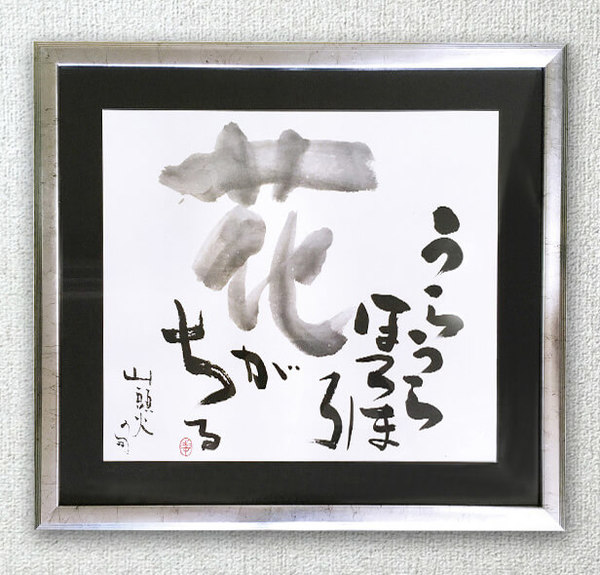 うらうら
ほろほ
ろ
花
が
ちる
山頭火
の句